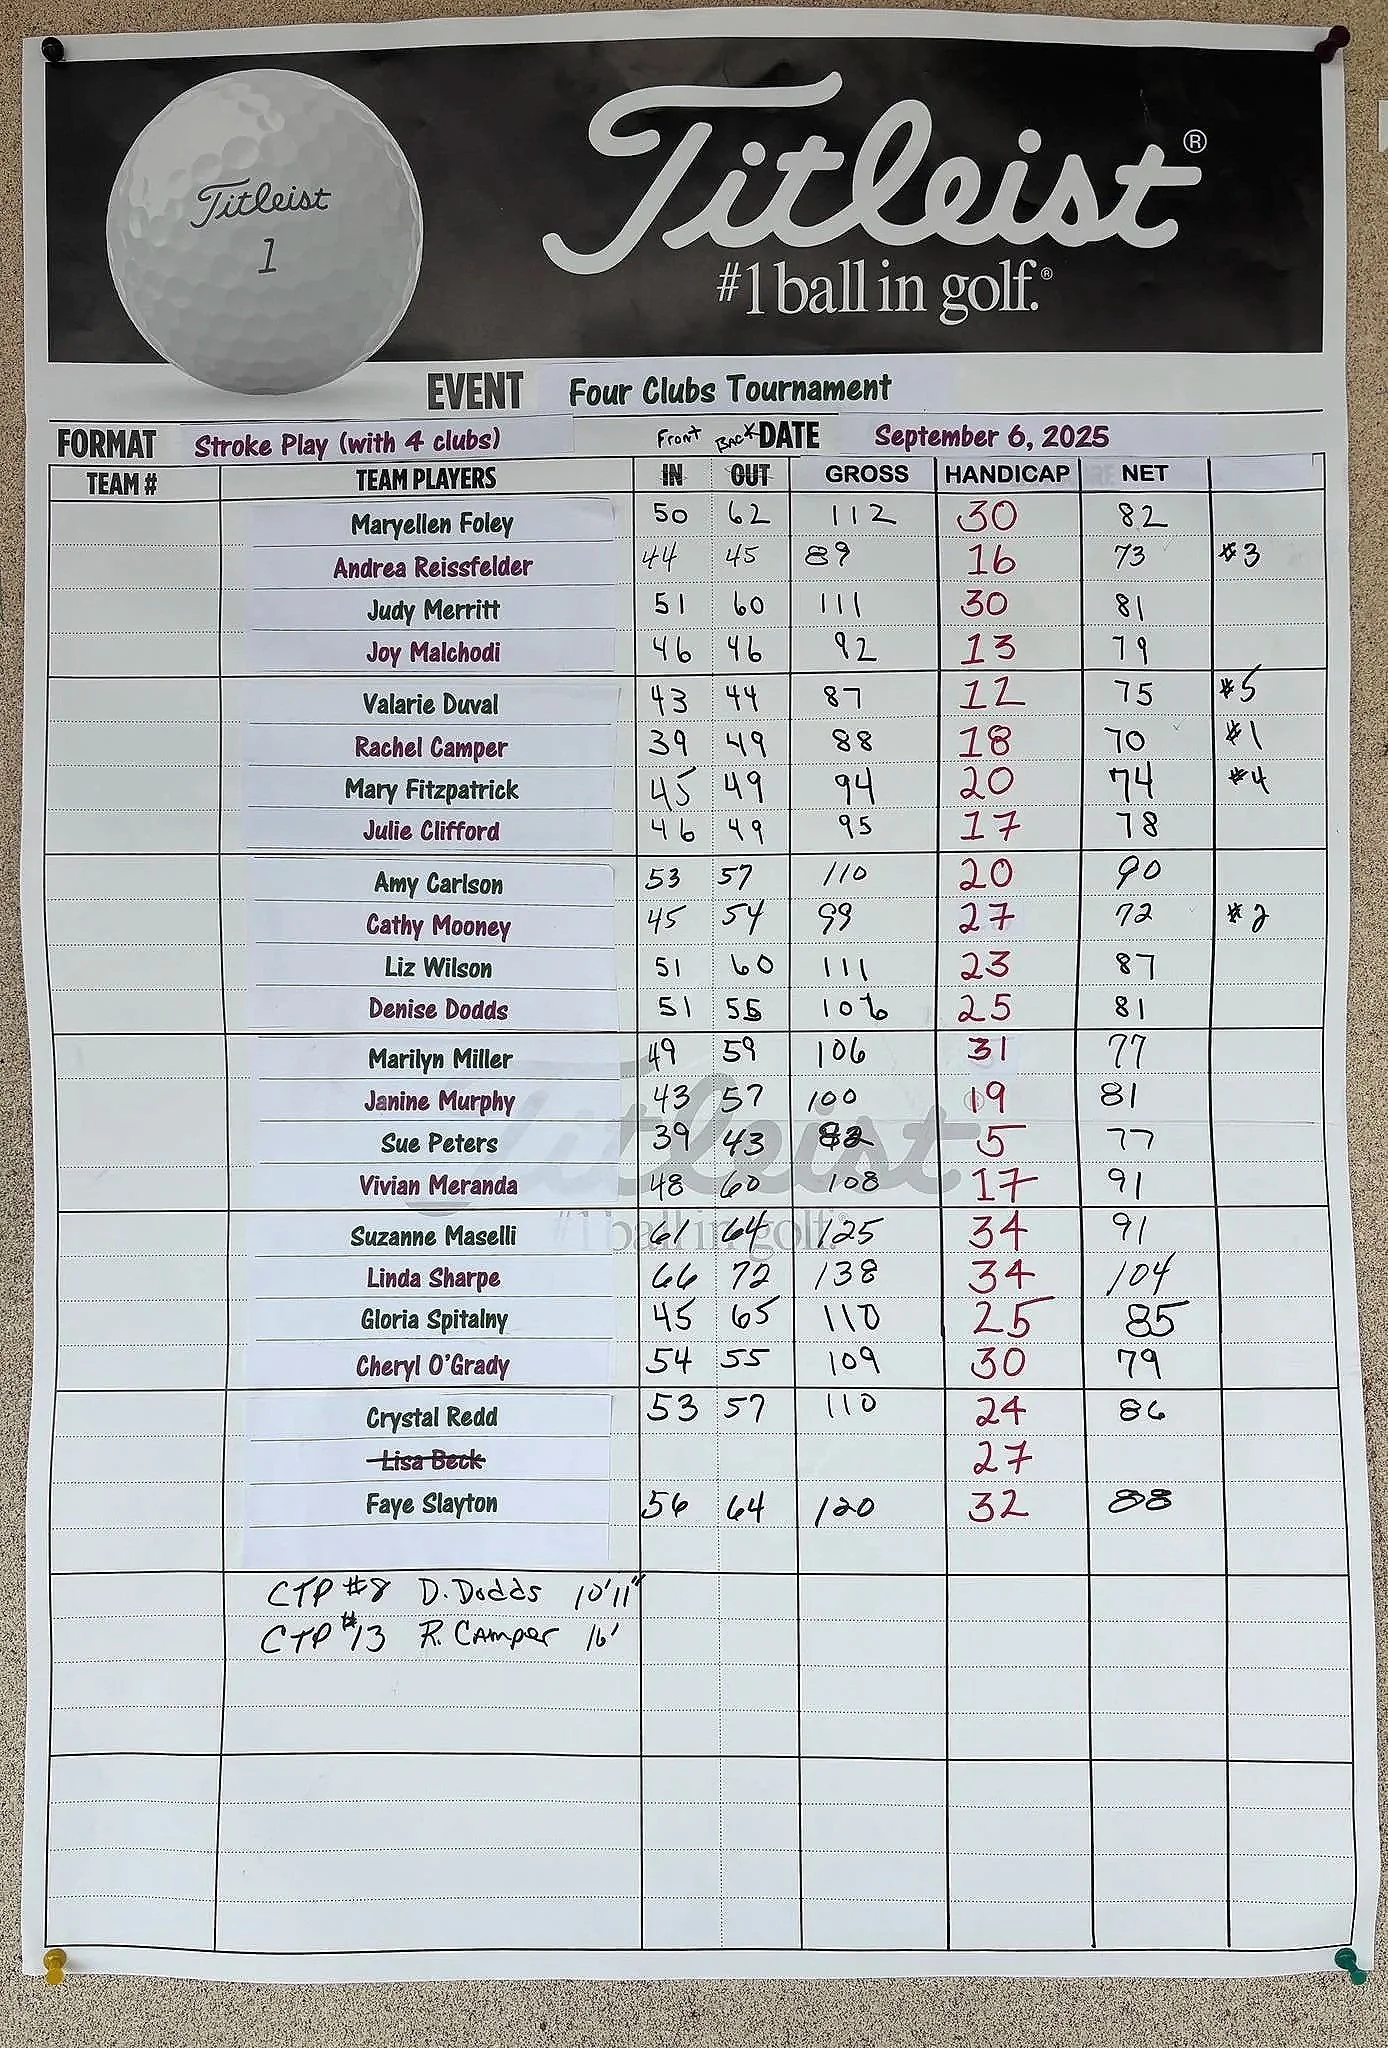 Titleist
1
Titleist®
#1 ball in golf.®
EVENT Four Clubs Tournament
FORMAT Stroke Play (with 4 clubs) Front Back DATE September 6, 2025
TEAM # TEAM PLAYERS IN OUT GROSS HANDICAP NET
Maryellen Foley 50 62 112 30 82
Andrea Reissfelder 44 45 89 16 73 #3
Judy Merritt 51 60 111 30 81
Joy Malchodi 46 46 92 13 79
Valarie Duval 43 44 87 12 75 #5
Rachel Camper 39 49 88 18 70 #1
Mary Fitzpatrick 45 49 94 20 74 #4
Julie Clifford 46 49 95 17 78
Amy Carlson 53 57 110 20 90
Cathy Mooney 45 54 99 27 72 #2
Liz Wilson 51 60 111 23 87
Denise Dodds 51 55 106 25 81
Marilyn Miller 49 59 106 31 77
Janine Murphy 43 57 100 19 81
Sue Peters 39 43 82 5 77
Vivian Meranda 48 60 108 17 91
Suzanne Maselli 61 64 125 34 91
Linda Sharpe 66 72 138 34 104
Gloria Spitalny 45 65 110 25 85
Cheryl O'Grady 54 55 109 30 79
Crystal Redd 53 57 110 24 86
Lisa Beck 27
Faye Slayton 56 64 120 32 88
Titleist®
#1 ball in golf.®
CTP #8 D. Dodds 10'11"
CTP #13 R. Camper 16'